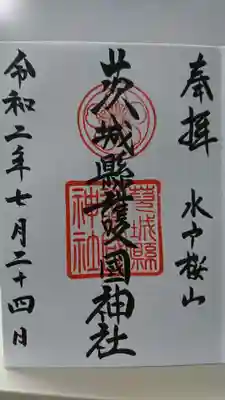 奉拝
水戸桜山
茨城縣護國神社
茨城縣
神社
令和二年七月二十四日